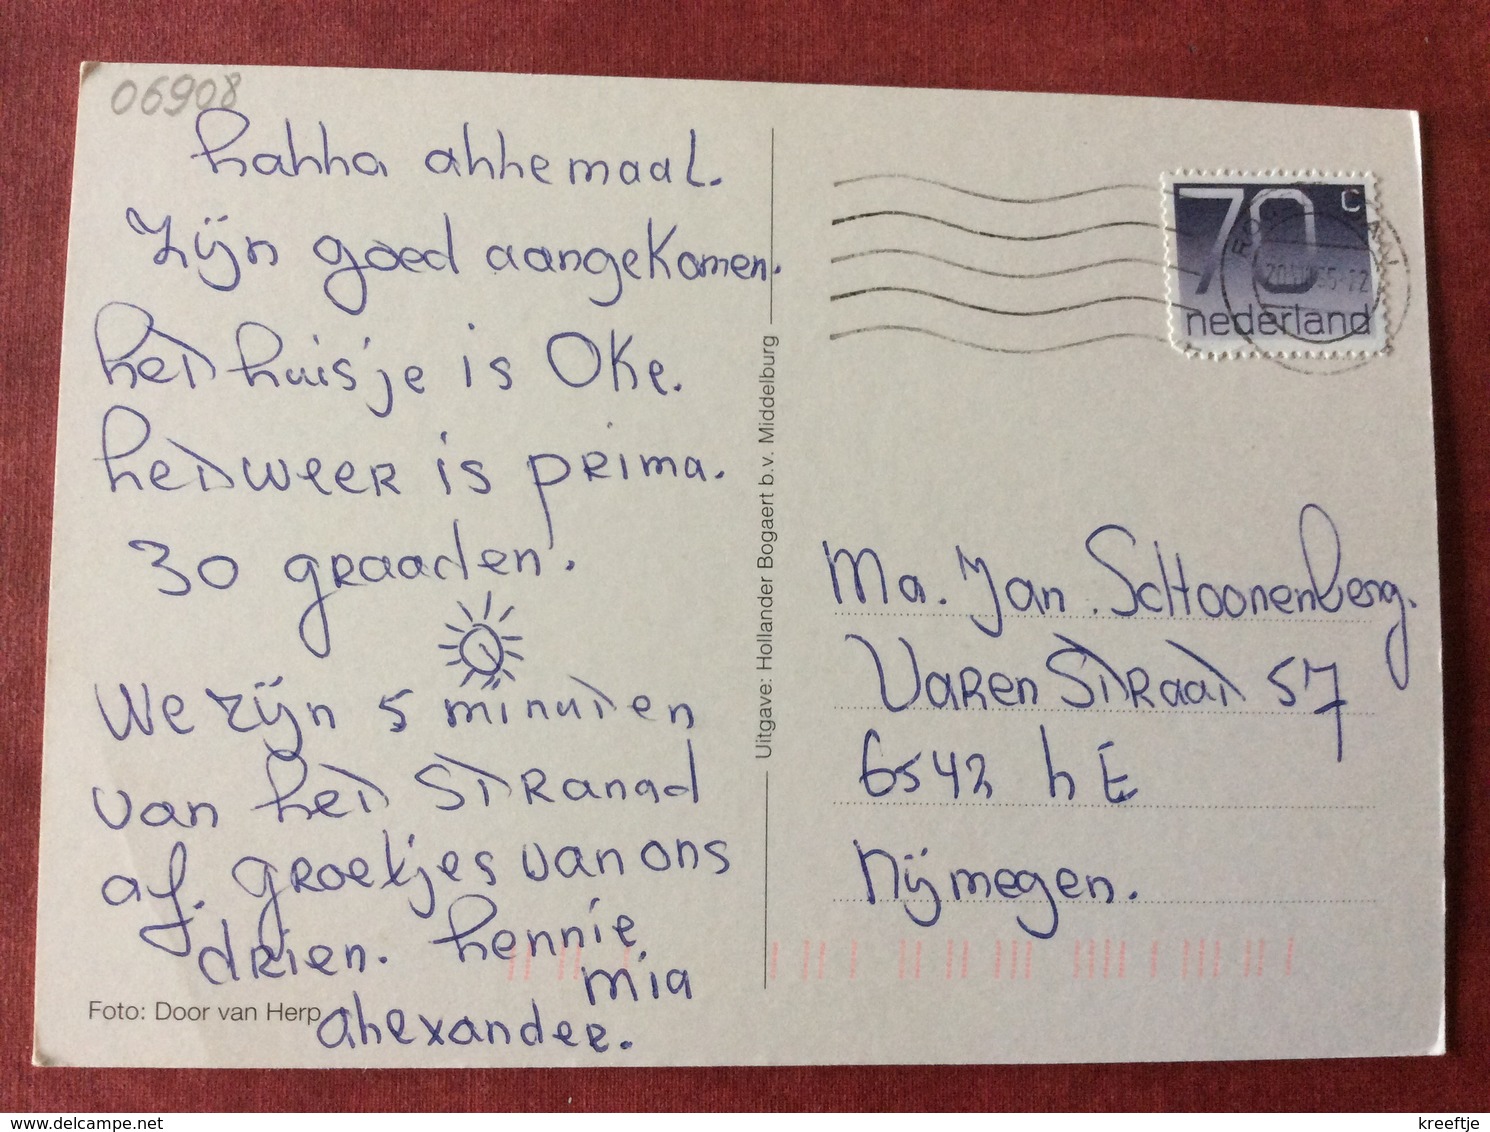 06908
hahha ahhemaal.
zijn goed aangekomen.
het huisje is Oke.
het weer is prima.
30 graaden.
We zijn 5 minuten
van het STRanad
af. groetjes van ons
drien. hennie
mia
ahexander.
Foto: Door van Herp
Uitgave: Hollander Bogaert b.v. Middelburg
70 c
nederland
Ma. Jan. Schoonenberg.
Varenstraat 57
6542 hE
Nijmegen.
kreeftje
delcampe.net